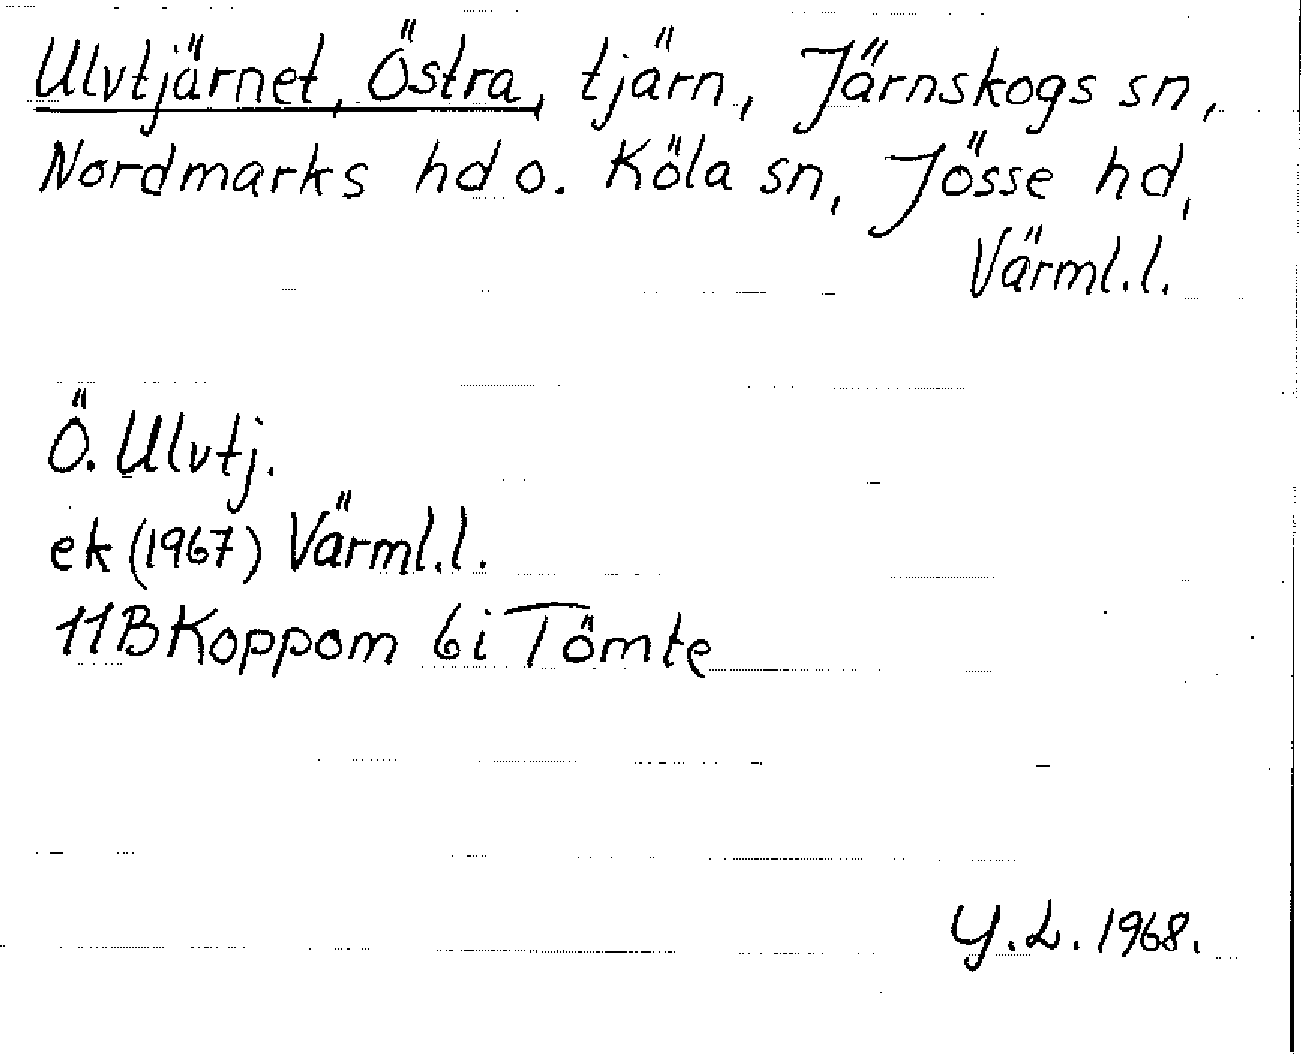 Ulvtjärnet, Östra, tjärn, Järnskogs sn,
Nordmarks hd o. Köla sn, Jösse hd,
Värml.l.
Ö. Ulvtj.
ek (1967) Värml.l.
11B Koppom 6i Tömte
Y.L. 1968.